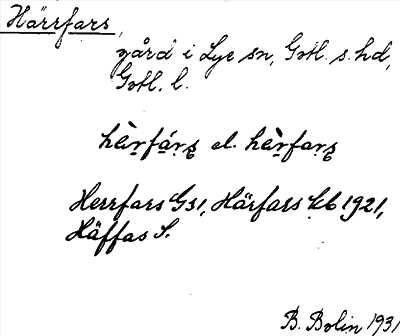 Härrfars,
gård i Lye sn, Gotl. s. hd,
Gotl. l.
hèr̤fár̤s̤ el. hèr̤far̤s̤
Herrfars GS1, Härfars kb 1921,
Häffas S.
B. Bolin 1931